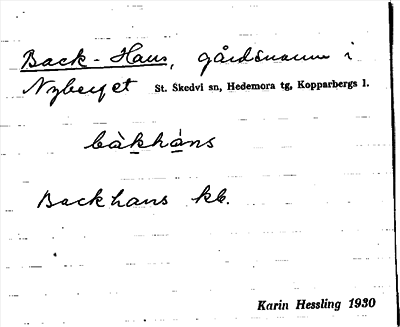 Back-Hans, gårdsnamn i
Nyberget St. Skedvi sn, Hedemora tg, Kopparbergs l.
bàkháns
Backhans kb.
Karin Hessling 1930